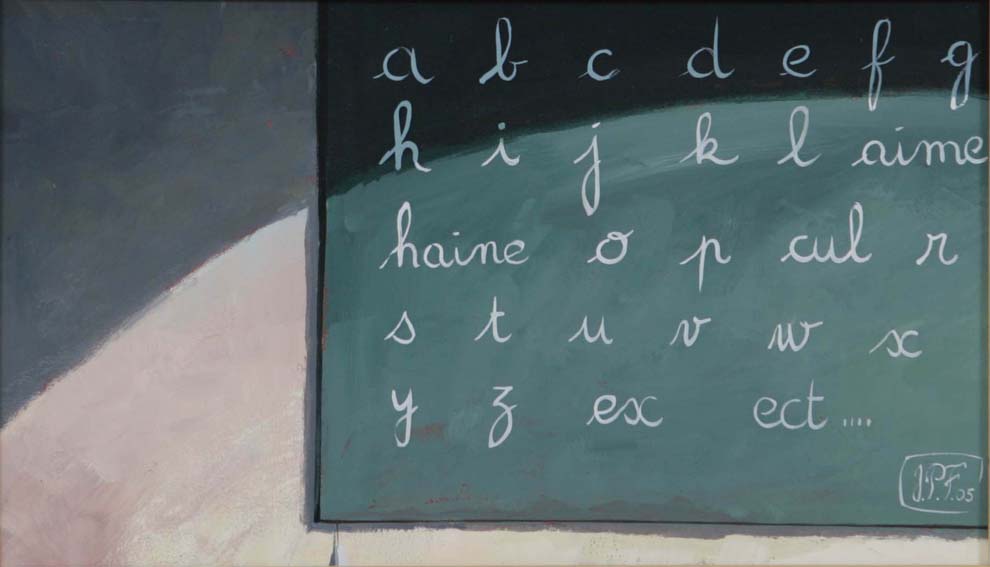 a b c d e f g
h i j k l aime
haine o p cul r
s t u v w x
y z ex ect....
J.P.F.05